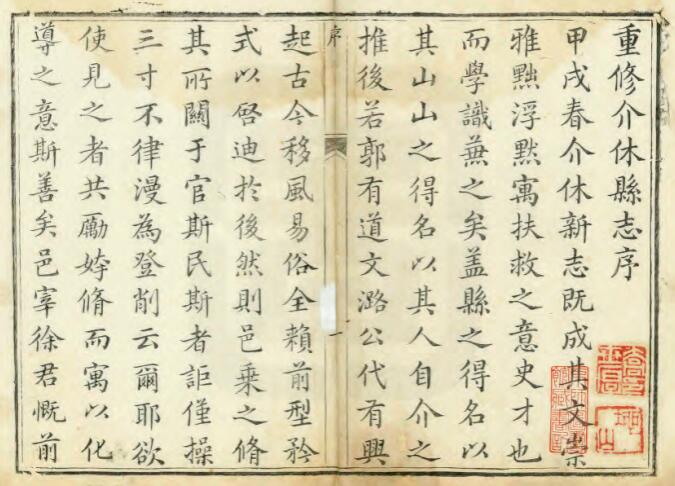 重修介休縣志序
甲戌春介休新志既成其文崇
雅黜浮默寓扶救之意史才也
而學識兼之矣蓋縣之得名以
其山山之得名以其人自介之
推後若郭有道文潞公代有興
序
一
起古今移風易俗全賴前型矜
式以啓迪於後然則邑乘之脩
其所關于官斯民斯者詎僅操
三寸不律漫為登削云爾耶欲
使見之者共勵姱脩而寓以化
導之意斯善矣邑宰徐君慨前